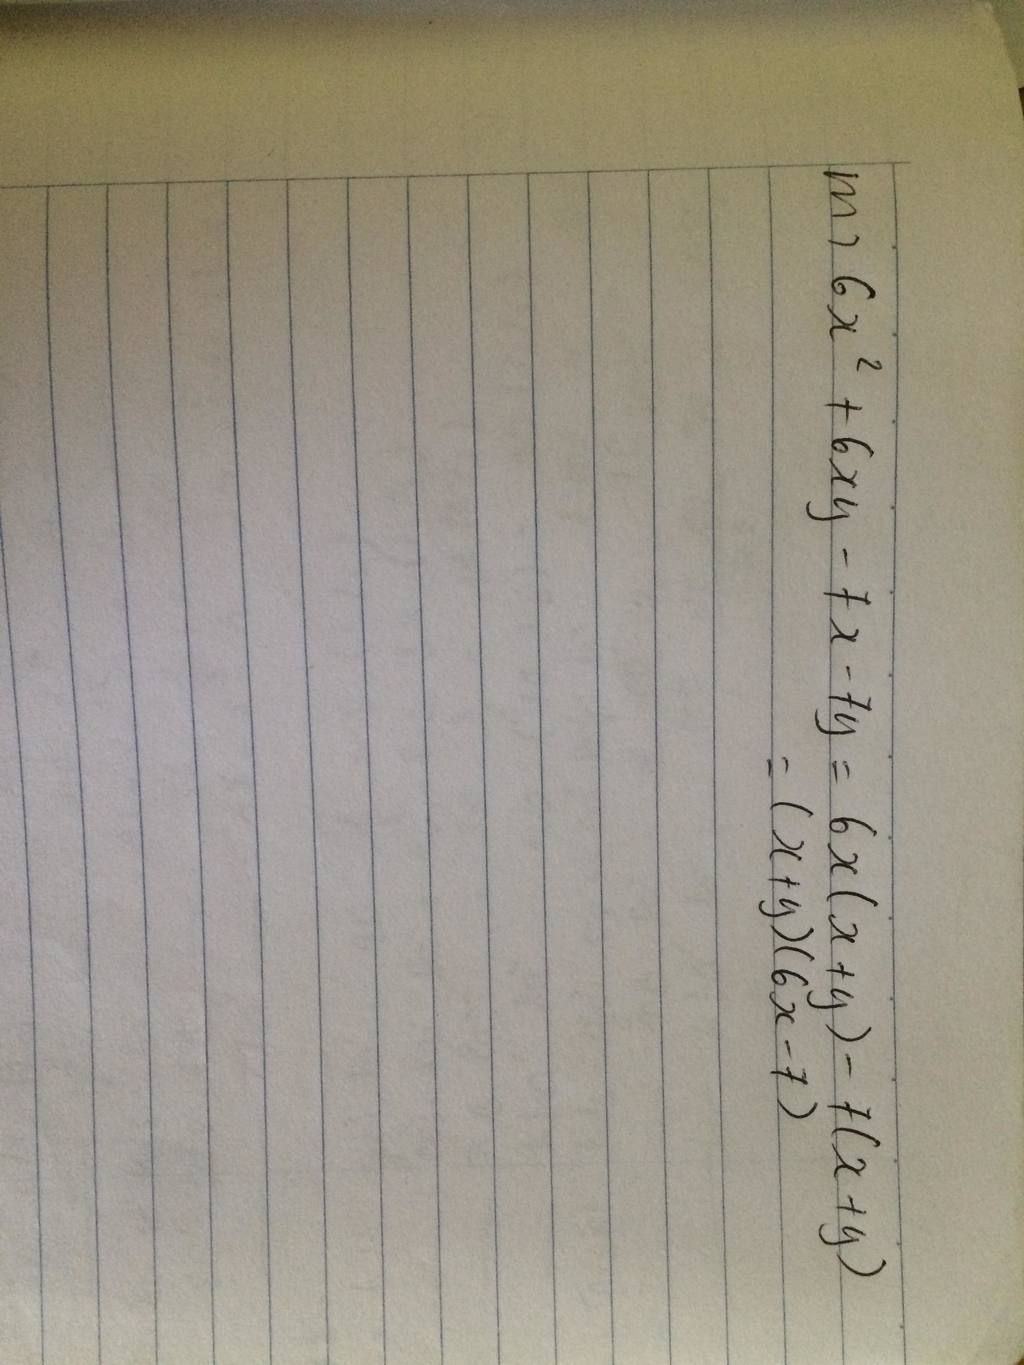 m) 6x² + 6xy - 7x - 7y = 6x(x+y) - 7(x+y)
= (x+y)(6x-7)